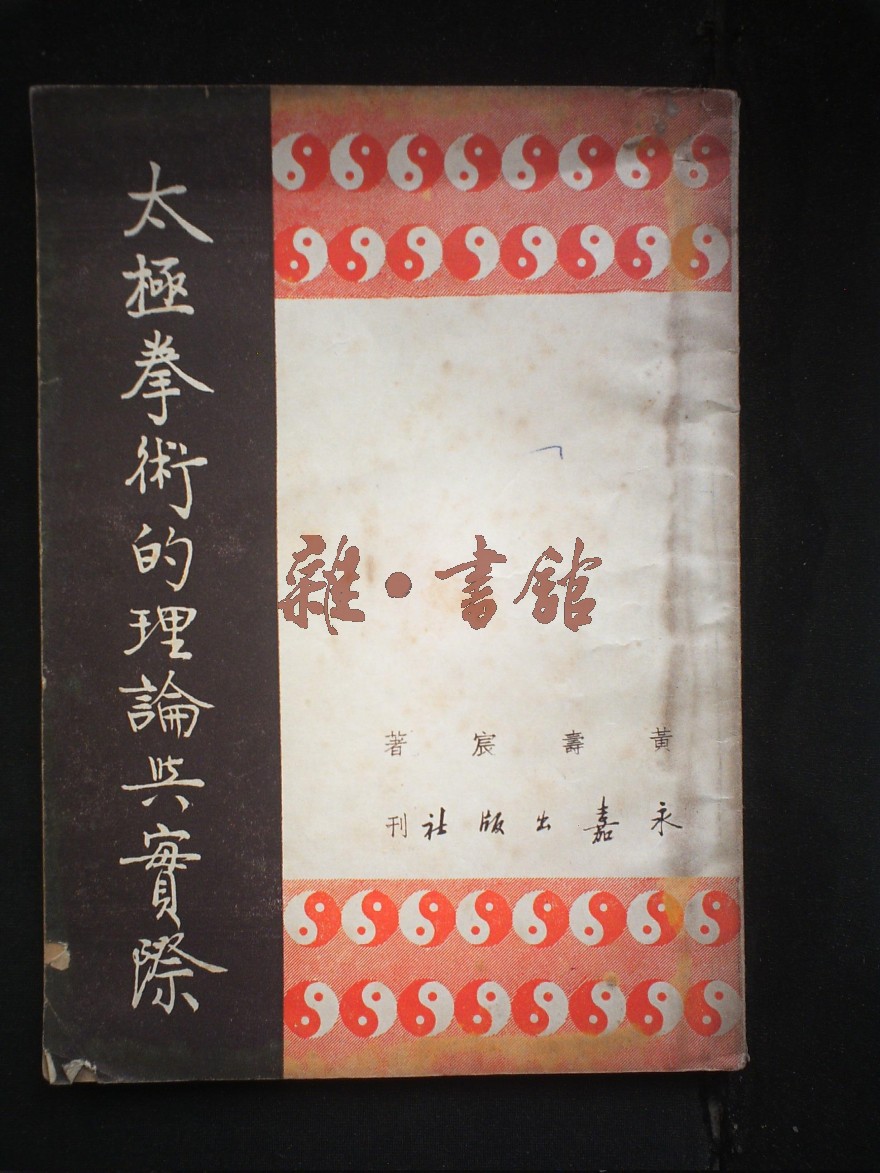 太極拳術的理論與實際
雜·書館
黃壽宸著
永嘉出版社刊